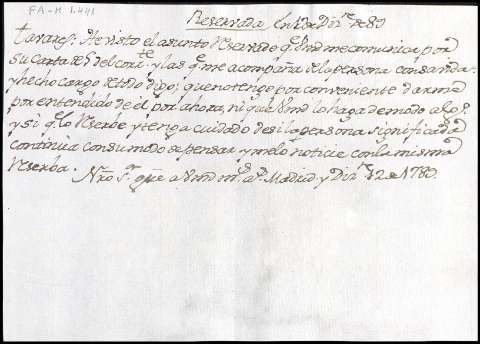 FA-M 1.441
Reservada En 12 de Diz.re de 80
Tavares: He visto el asunto reservado q.e Vmd me comunica por
su carta de 5 del corr.te y las q.e me acompaña de la persona consavida:
y hecho cargo de todo digo; que no tengo por conveniente darme
por entendido de él por ahora, ni que Vmd lo haga de modo alg.o
y si q.e lo reserbe y tenga cuidado de si la persona significada
continua con su modo de pensar y me lo noticie con la misma
reserba. Nro S.r gũe a Vmd m.s a.s Madrid y Diz.re 12 de 1780.